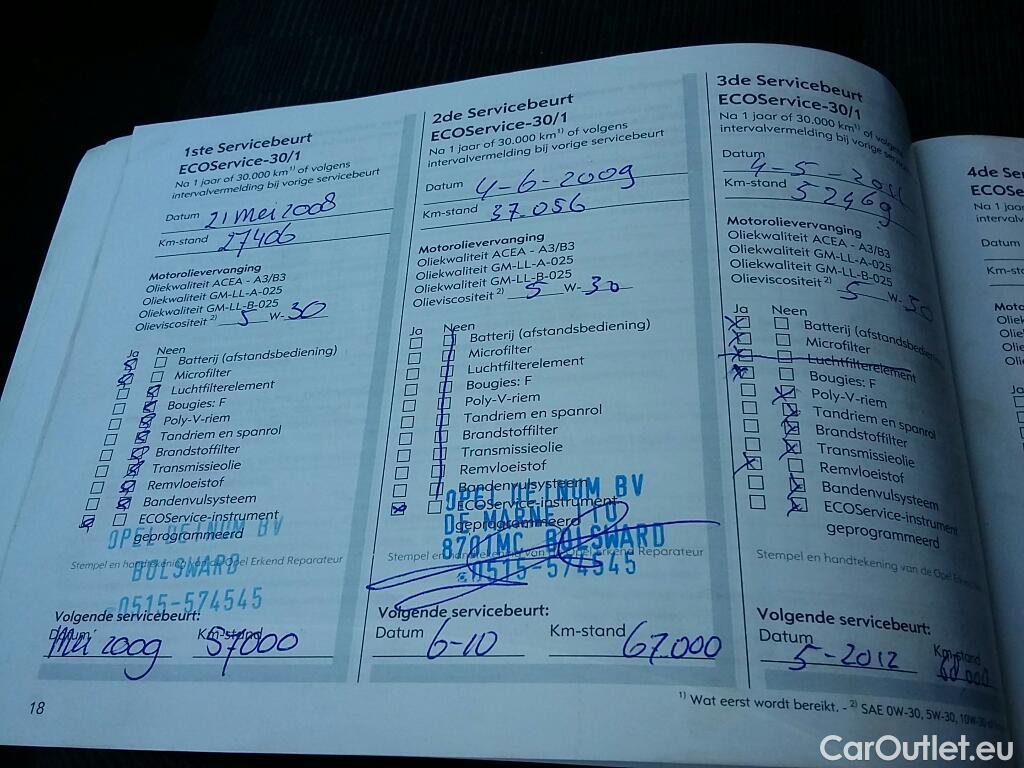 1ste Servicebeurt
ECOService-30/1
Na 1 jaar of 30.000 km¹⁾ of volgens
intervalvermelding bij vorige servicebeurt
Datum 21 Mei 2008
Km-stand 27406
Motorolievervanging
Oliekwaliteit ACEA - A3/B3
Oliekwaliteit GM-LL-A-025
Oliekwaliteit GM-LL-B-025
Olieviscositeit ²⁾ 5 W-30
Ja Neen
Batterij (afstandsbediening)
Microfilter
Luchtfilterelement
Bougies: F
Poly-V-riem
Tandriem en spanrol
Brandstoffilter
Transmissieolie
Remvloeistof
Bandenvulsysteem
ECOService-instrument
geprogrammeerd
OPEL DEINUM BV
Stempel en handtekening van de Opel Erkend Reparateur
BOLSWARD
0515-574545
Volgende servicebeurt:
Datum Km-stand
Mei 2009 57000
18
2de Servicebeurt
ECOService-30/1
Na 1 jaar of 30.000 km¹⁾ of volgens
intervalvermelding bij vorige servicebeurt
Datum 4-6-2009
Km-stand 37.056
Motorolievervanging
Oliekwaliteit ACEA - A3/B3
Oliekwaliteit GM-LL-A-025
Oliekwaliteit GM-LL-B-025
Olieviscositeit ²⁾ 5 W-30
Ja Neen
Batterij (afstandsbediening)
Microfilter
Luchtfilterelement
Bougies: F
Poly-V-riem
Tandriem en spanrol
Brandstoffilter
Transmissieolie
Remvloeistof
Bandenvulsysteem
ECOService-instrument
geprogrammeerd
OPEL DEINUM BV
DE MARNE 110
8701MC BOLSWARD
Stempel en handtekening van de Opel Erkend Reparateur
0515-574545
Volgende servicebeurt:
Datum 6-10 Km-stand 67.000
3de Servicebeurt
ECOService-30/1
Na 1 jaar of 30.000 km¹⁾ of volgens
intervalvermelding bij vorige
Datum 4-5-
Km-stand 52469
Motorolievervanging
Oliekwaliteit ACEA - A3/B3
Oliekwaliteit GM-LL-A-025
Oliekwaliteit GM-LL-B-025
Olieviscositeit ²⁾ 5 W-30
Ja Neen
Batterij (afstandsbediening
Microfilter
Luchtfilterelement
Bougies: F
Poly-V-riem
Tandriem en spanrol
Brandstoffilter
Transmissieolie
Remvloeistof
Bandenvulsysteem
ECOService-instrument
geprogrammeerd
Stempel en handtekening van de Opel
Volgende servicebeurt:
Datum Km-stand
5-2012
¹⁾ Wat eerst wordt bereikt. - ²⁾ SAE 0W-30, 5W-30,
4de
Datum
Ja
CarOutlet.eu